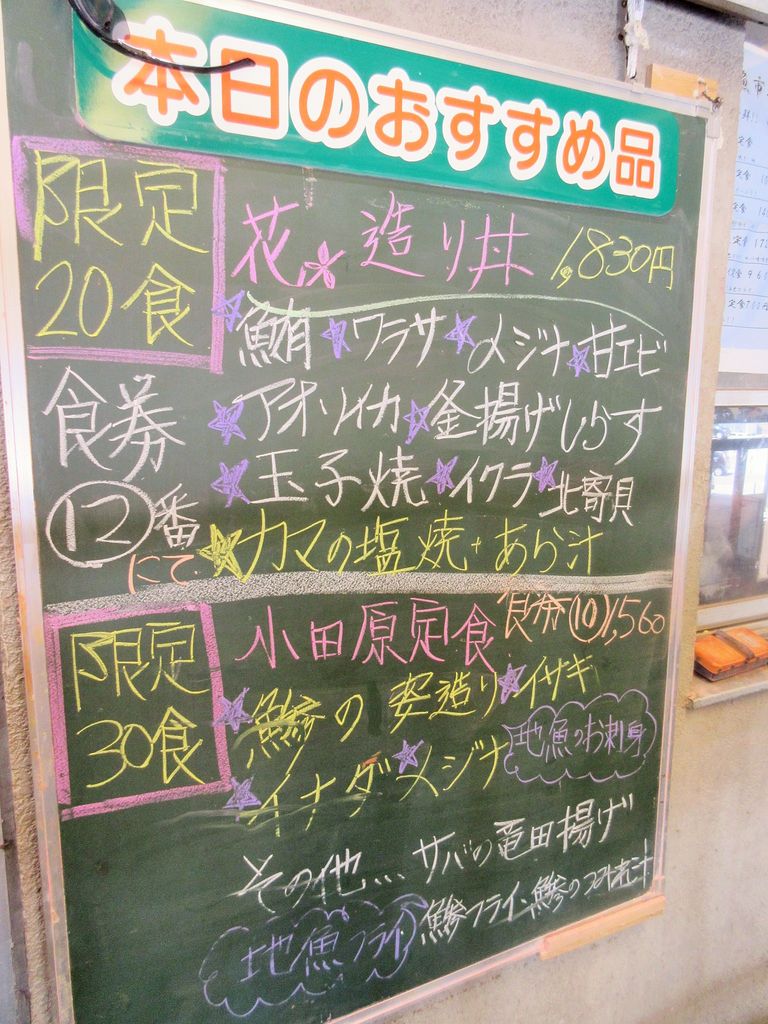 本日のおすすめ品
限定
20食
花造り丼 1,830円
鮪 ワラサ メジナ 甘エビ
アオリイカ 釜揚げしらす
玉子焼 イクラ 北寄貝
カマの塩焼+あら汁
食券
⑫番
にて
限定
30食
小田原定食 食券⑩1,560
鯵の姿造り イサキ
イナダ メジナ
地魚のお刺身
その他… サバの竜田揚げ
地魚フライ
鯵フライ、鯵のつみれ汁